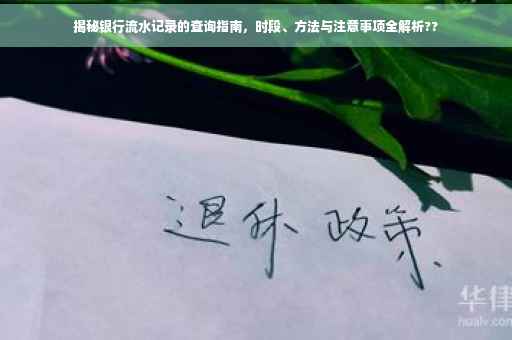 揭秘银行流水记录的查询指南，时段、方法与注意事项全解析??
退休 政策
华律
hualv.com